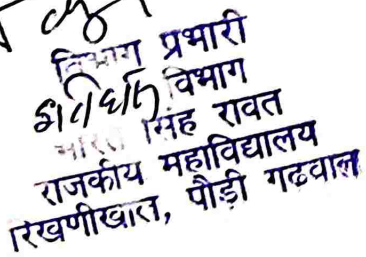 विभाग प्रभारी
विभाग
सिंह रावत
राजकीय महाविद्यालय
रिखणीखाल, पौड़ी गढवाल